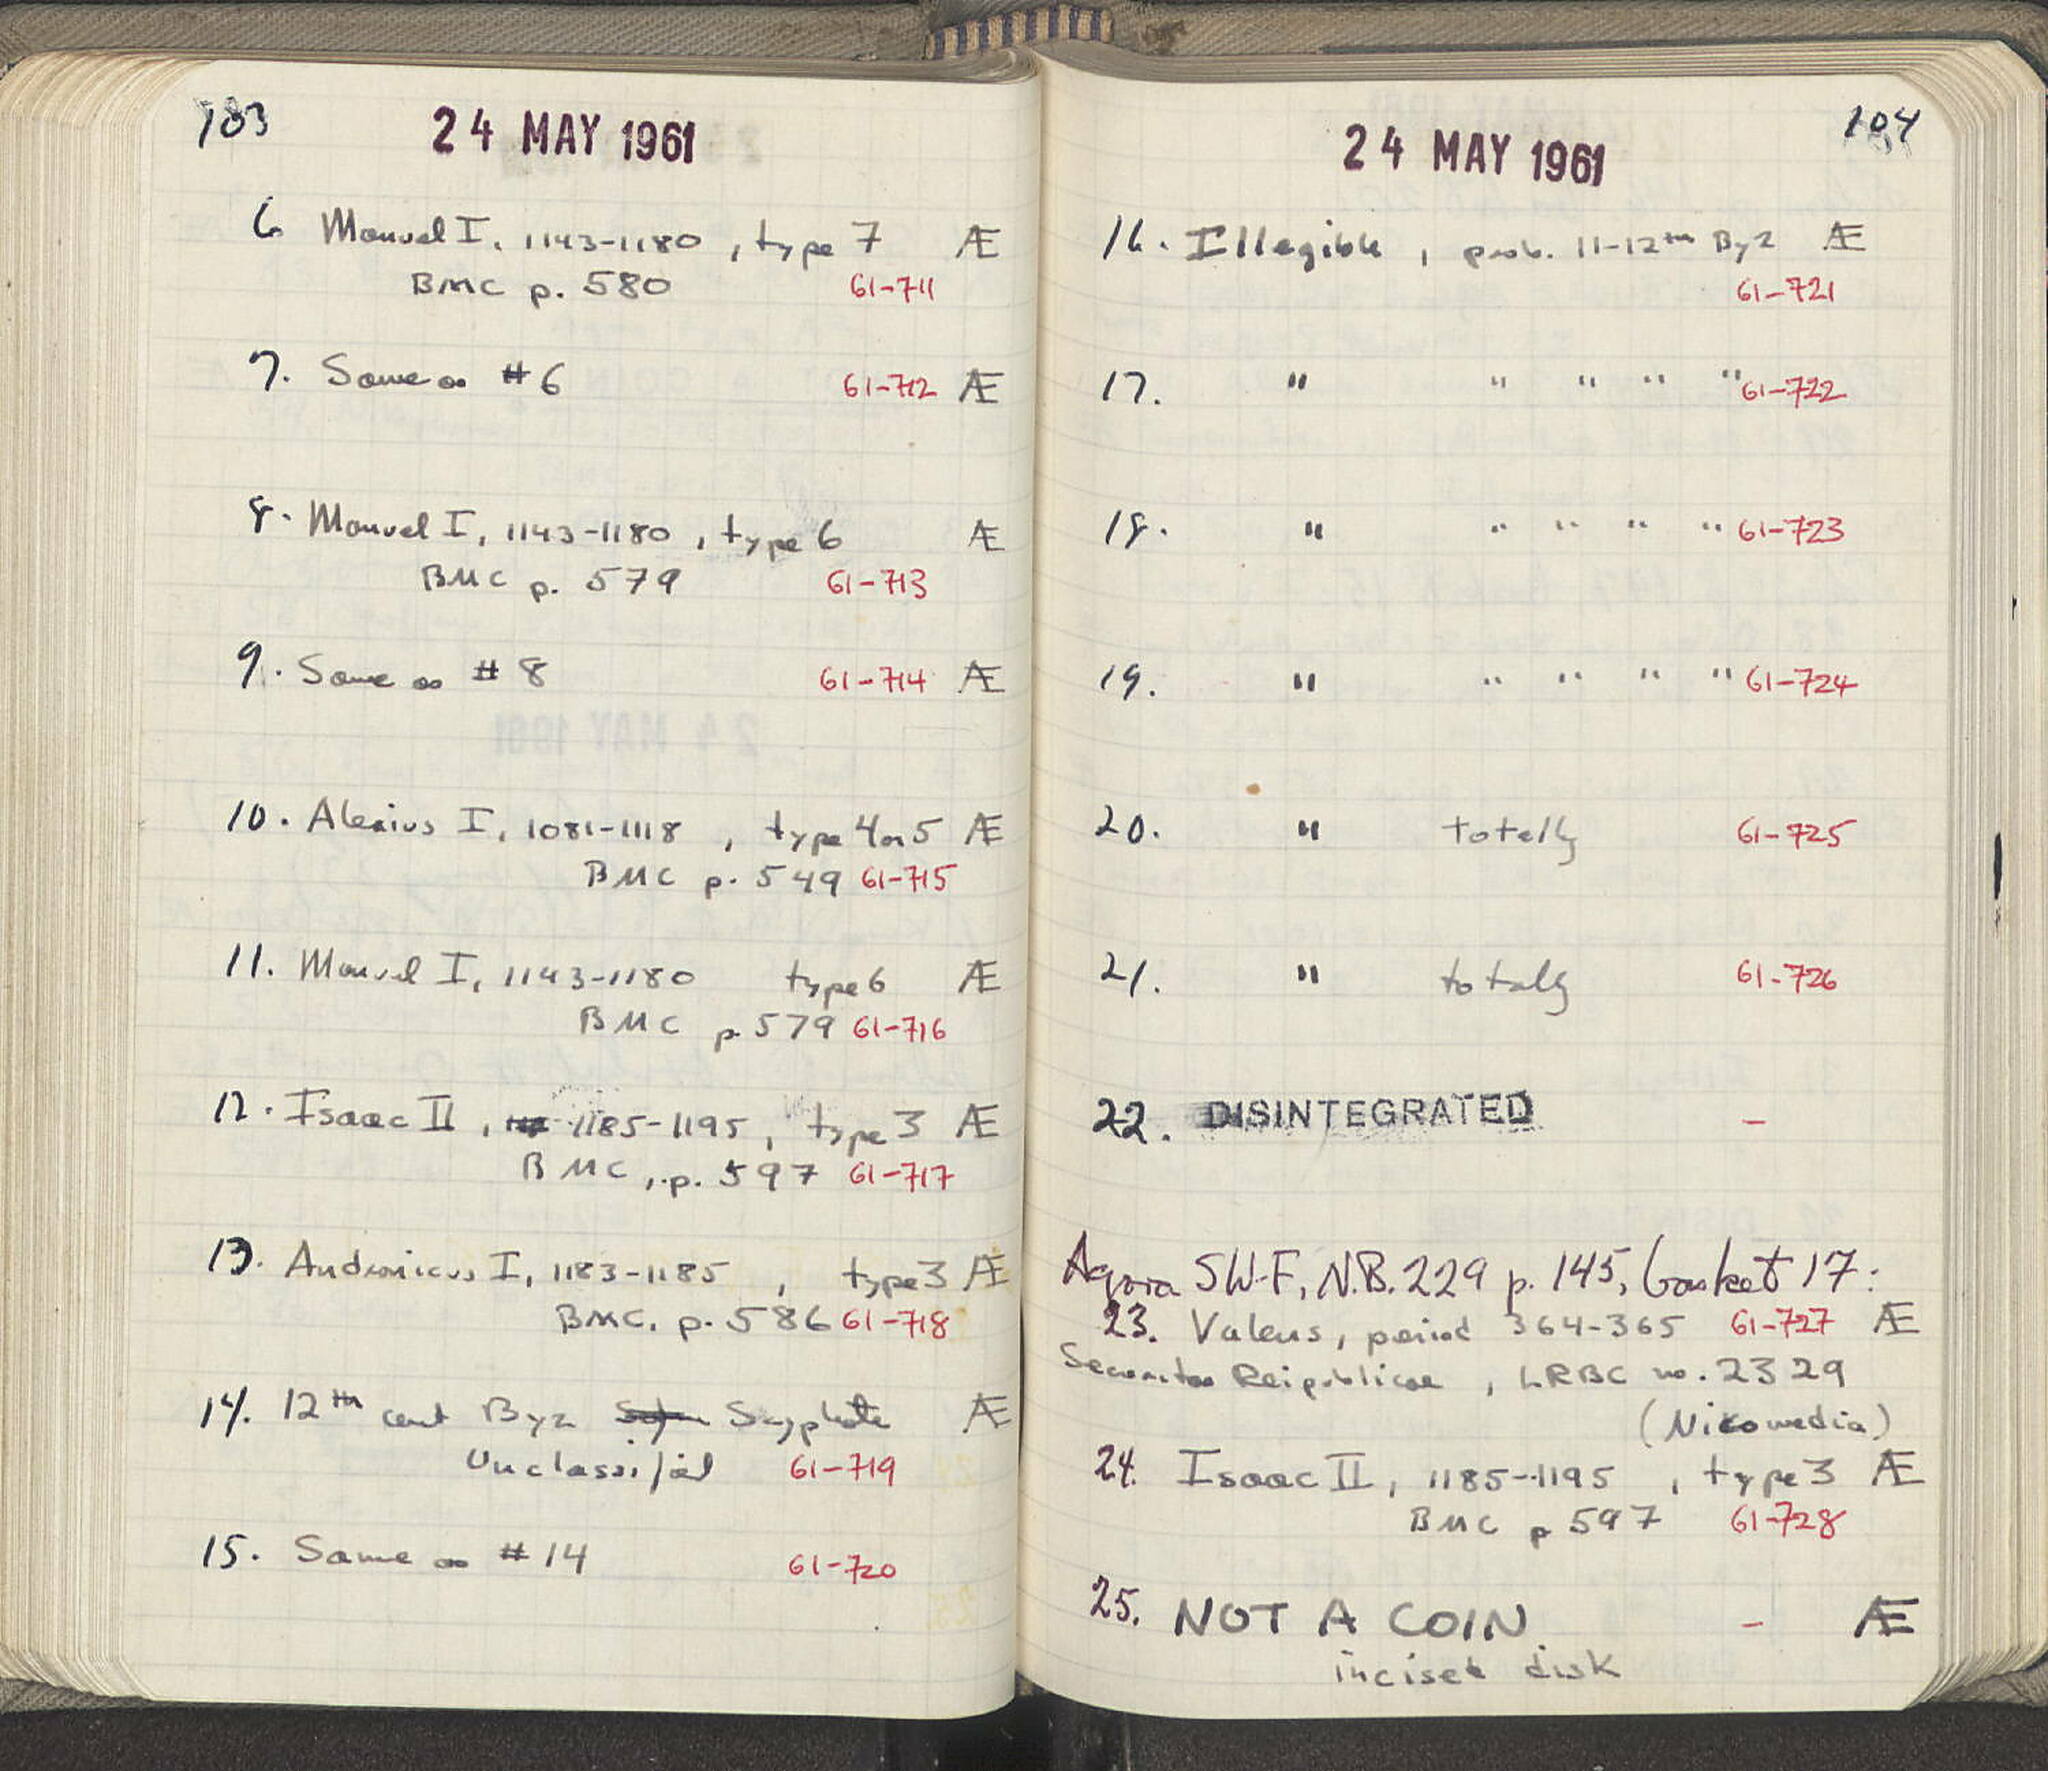 183
24 MAY 1961
6 Manuel I, 1143-1180, type 7 Æ
BMC p. 580 61-711
7. Same as #6 61-712 Æ
8. Manuel I, 1143-1180, type 6 Æ
BMC p. 579 61-713
9. Same as #8 61-714 Æ
10. Alexius I, 1081-1118, type 4 or 5 Æ
BMC p. 549 61-715
11. Manuel I, 1143-1180 type 6 Æ
BMC p. 579 61-716
12. Isaac II, 1185-1195, type 3 Æ
BMC, p. 597 61-717
13. Andronicus I, 1183-1185, type 3 Æ
BMC, p. 586 61-718
14. 12th cent Byz Scyphate Æ
Unclassified 61-719
15. Same as #14 61-720
104
24 MAY 1961
16. Illegible, prob. 11-12th Byz Æ
61-721
17. " " " " " 61-722
18. " " " " " 61-723
19. " " " " " 61-724
20. " totally 61-725
21. " totally 61-726
22. DISINTEGRATED –
Agora SW-F, N.B. 229 p. 145, basket 17:
23. Valens, period 364-365 61-727 Æ
Securitas Reipublicae, LRBC no. 2329
(Nicomedia)
24. Isaac II, 1185-1195, type 3 Æ
BMC p 597 61-728
25. NOT A COIN – Æ
incised disk